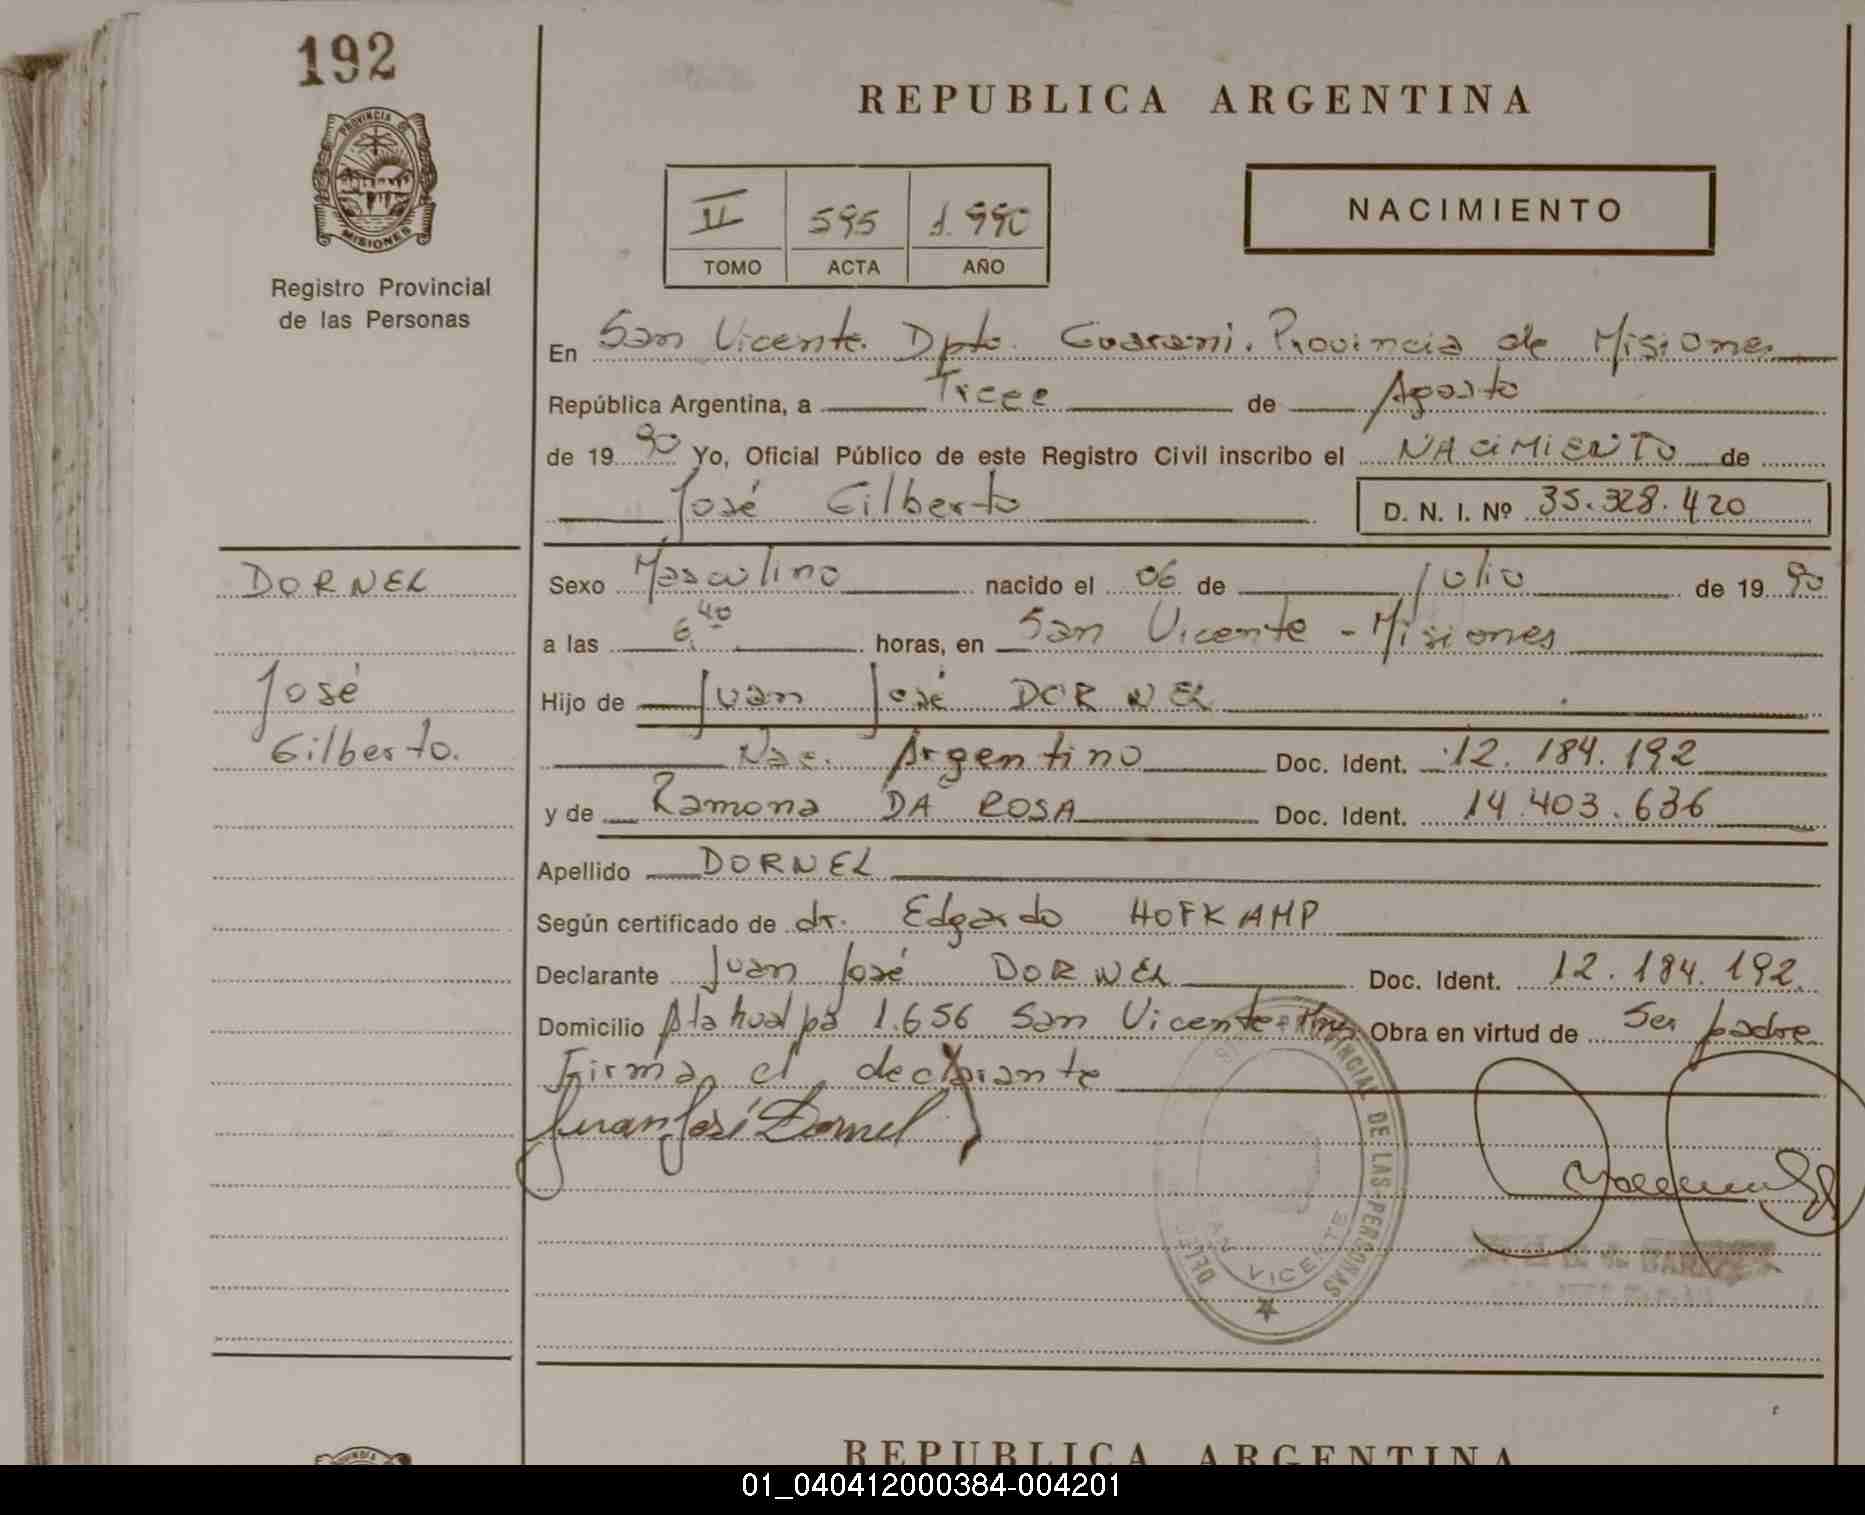 192
REPUBLICA ARGENTINA
PROVINCIA DE
MISIONES
Registro Provincial
de las Personas
II 595 1.990
TOMO ACTA AÑO
NACIMIENTO
En San Vicente. Dpto. Guarani. Provincia de Misiones
República Argentina, a Trece de Agosto
de 1990 Yo, Oficial Público de este Registro Civil inscribo el NACIMIENTO de
José Gilberto D. N. I. Nº 35.328.420
DORNEL
José
Gilberto.
Sexo Masculino nacido el 06 de Julio de 1990
a las 6.40 horas, en San Vicente - Misiones
Hijo de Juan José DORNEL
Nac. Argentino Doc. Ident. 12.184.192
y de Ramona DA ROSA Doc. Ident. 14.403.636
Apellido DORNEL
Según certificado de dr. Edgardo HOFKAMP
Declarante Juan José DORNEL Doc. Ident. 12.184.192.
Domicilio Atahualpa 1.656 San Vicente Mns. Obra en virtud de Ser padre
Firma el declarante
Juan José Dornel
PROVINCIAL DE LAS PERSONAS
SAN VICENTE
REPUBLICA ARGENTINA
01_040412000384-004201